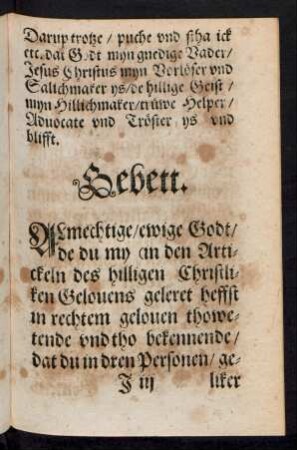 Darup trotze / puche vnd staha ick
etc. dat Godt myn gnedige Vader /
Jesus Christus myn Vorlöser vnd
Salichmaker ys / de hillige Geist /
myn Hillichmaker / trüwe Helper /
Aduocate vnd Tröster ys vnd
blifft.
Gebett.
ALmechtige / ewige Godt /
de du my in den Arti-
ckeln des hilligen Christli-
ken Gelouens geleret heffst
in rechtem gelouen thowe-
tende vnd tho bekennende /
dat du in dren Personen / ge-
J iij liker